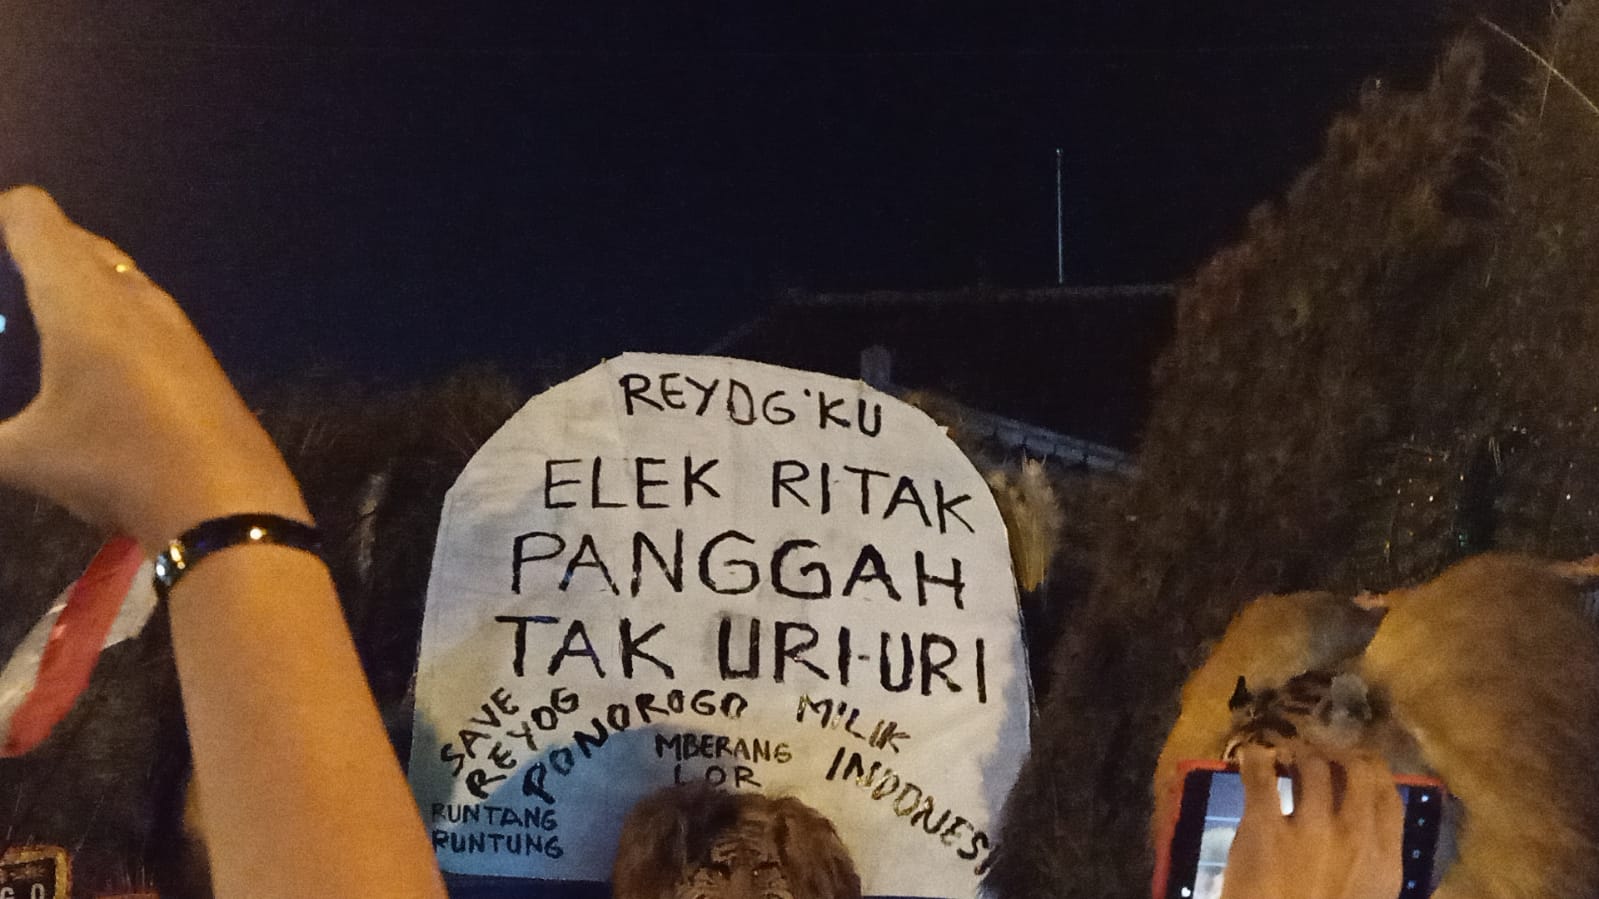 REYOG'KU
ELEK RITAK
PANGGAH
TAK URI-URI
SAVE
REYOG
PONOROGO MILIK
INDONESI
MBERANG
LOR
RUNTANG
RUNTUNG